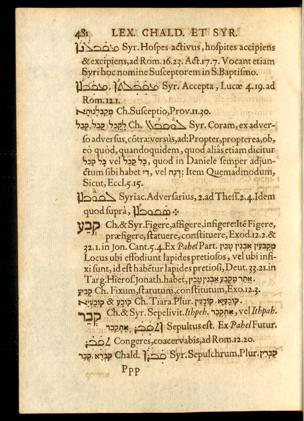 481 LEX. CHALD. ET SYR.
Syr. Hospes activus, hospites accipiens
& excipiens, ad Rom. 16. 23. Act. 17. 7. Vocant etiam
Syri hoc nomine Susceptorem in S. Baptismo.
Syr. Accepta, Lucæ 4. 19. ad
Rom. 12. 1.
Ch. Susceptio, Prov. 11. 30.
קבל, לקבל Ch. Syr. Coram, ex adver-
so adversus, cōtra, versùs, ad: Propter, propterea, ob,
eò quòd, quandoquidem, quod aliàs etiam dicitur
קבל כל vel כל קבל, quod in Daniele semper adjun-
ctum sibi habet די, vel דנה: Item Quemadmodum,
Sicut, Eccl. 5. 15.
Syriac. Adversarius, 2. ad Thess. 2. 4. Idem
quod suprà,
קבע Ch. & Syr. Figere, affigere, infigere: Ité Figere,
præfigere, statuere, constituere, Exod. 12. 2. &
32. 1. in Jon. Cant. 5. 4. Ex Pahel Part. מקבעין אבנין טבין
Locus ubi effodiunt lapides pretiosos, vel ubi infi-
xi sunt, id est habētur lapides pretiosi, Deut. 33. 21. in
Targ. Hieros. Jonath. habet, אתר מקבעין אבנין טבין.
קביע Ch. Fixum, statutum, constitutum, Exo. 12. 3.
קובע & קובעא Ch. Tiara. Plur. קובעיא, קובעין.
קבר Ch. & Syr. Sepelivit. Ithpeh. אתקבר, vel Ithpah.
אתקבר, Sepultus est. Ex Pahel Futur.
Congeres, coacervabis, ad Rom. 12. 20.
קבר, קברא Chald. Syr. Sepulchrum. Plur. קברין
Ppp